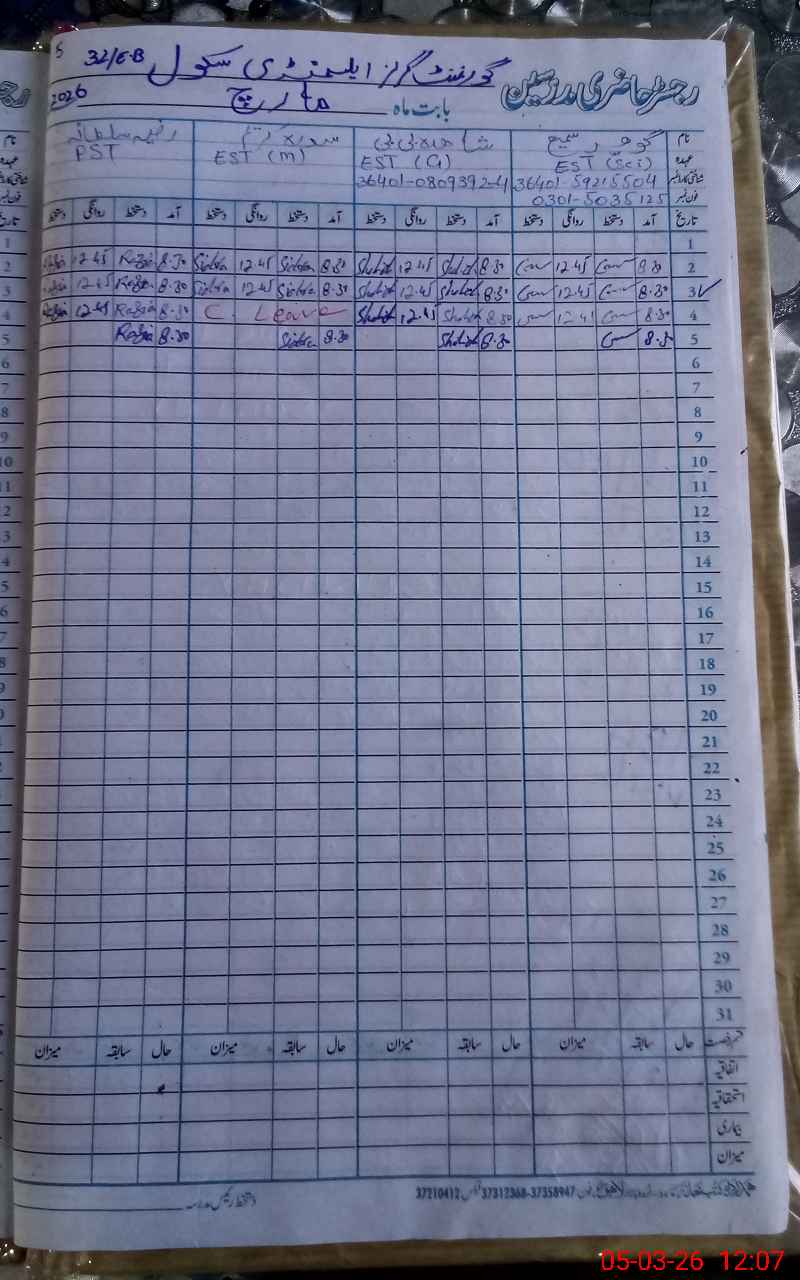 رجسٹر حاضری مدرسین گورنمنٹ گرلز ایلیمنٹری سکول 32/E.B
بابت ماہ مارچ 2026
نام گوہر مسیح شاہدہ بی بی سدرہ کریم رضیہ سلطانہ
عہدہ EST (Sci) EST (G) EST (M) PST
شناختی کارڈ نمبر 36401-0809392-4
فون نمبر 0301-5035125
تاریخ آمد دستخط روانگی دستخط آمد دستخط روانگی دستخط آمد دستخط روانگی دستخط آمد دستخط روانگی دستخط
1
2 8.30 12.45 8.30 Shahida 12.45 8.30 Sidra 12.45 Sidra 8.30 Razia 12.45 Razia
3 8.30 12.45 8.30 Shahida 12.45 8.30 Sidra 12.45 Sidra 8.30 Razia 12.45 Razia
4 8.30 12.45 8.30 Shahida 12.45 Shahida C. Leave 8.30 Razia 12.45 Razia
5 8.30 8.30 Shahida 8.30 Sidra 8.30 Razia
6
7
8
9
10
11
12
13
14
15
16
17
18
19
20
21
22
23
24
25
26
27
28
29
30
31
قسم رخصت حال سابقہ میزان حال سابقہ میزان حال سابقہ میزان حال سابقہ میزان
اتفاقیہ
استحقاقیہ
بیماری
میزان
37312368-37358947 37210412
دستخط رئیس مدرسہ
05-03-26 12:07